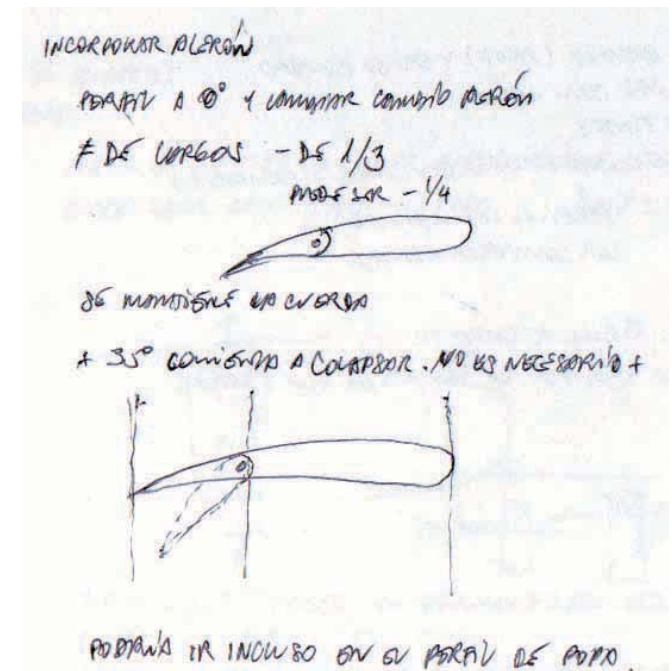 INCORPORAR ALERÓN
PERFIL A 0° Y CAMBIAR COMANDO ALERÓN
≠ DE CARGAS - DE 1/3
PUEDE SER - 1/4
SE MANTIENE LA CUERDA
+ 35° COMIENZA A COLAPSAR. NO ES NECESARIO +
PODRÍA IR INCLUSO EN EL PERFIL DE POPA.